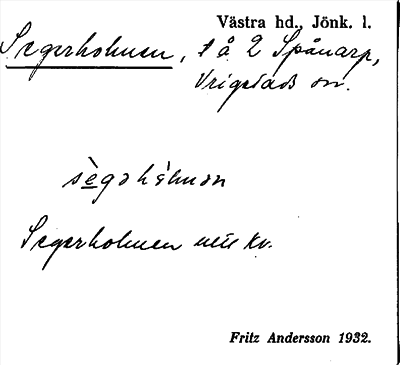 Västra hd., Jönk. l.
Segerholmen, t å 2 Spånarp,
Vrigstads sn.
Segerholmen
Fritz Andersson 1932.